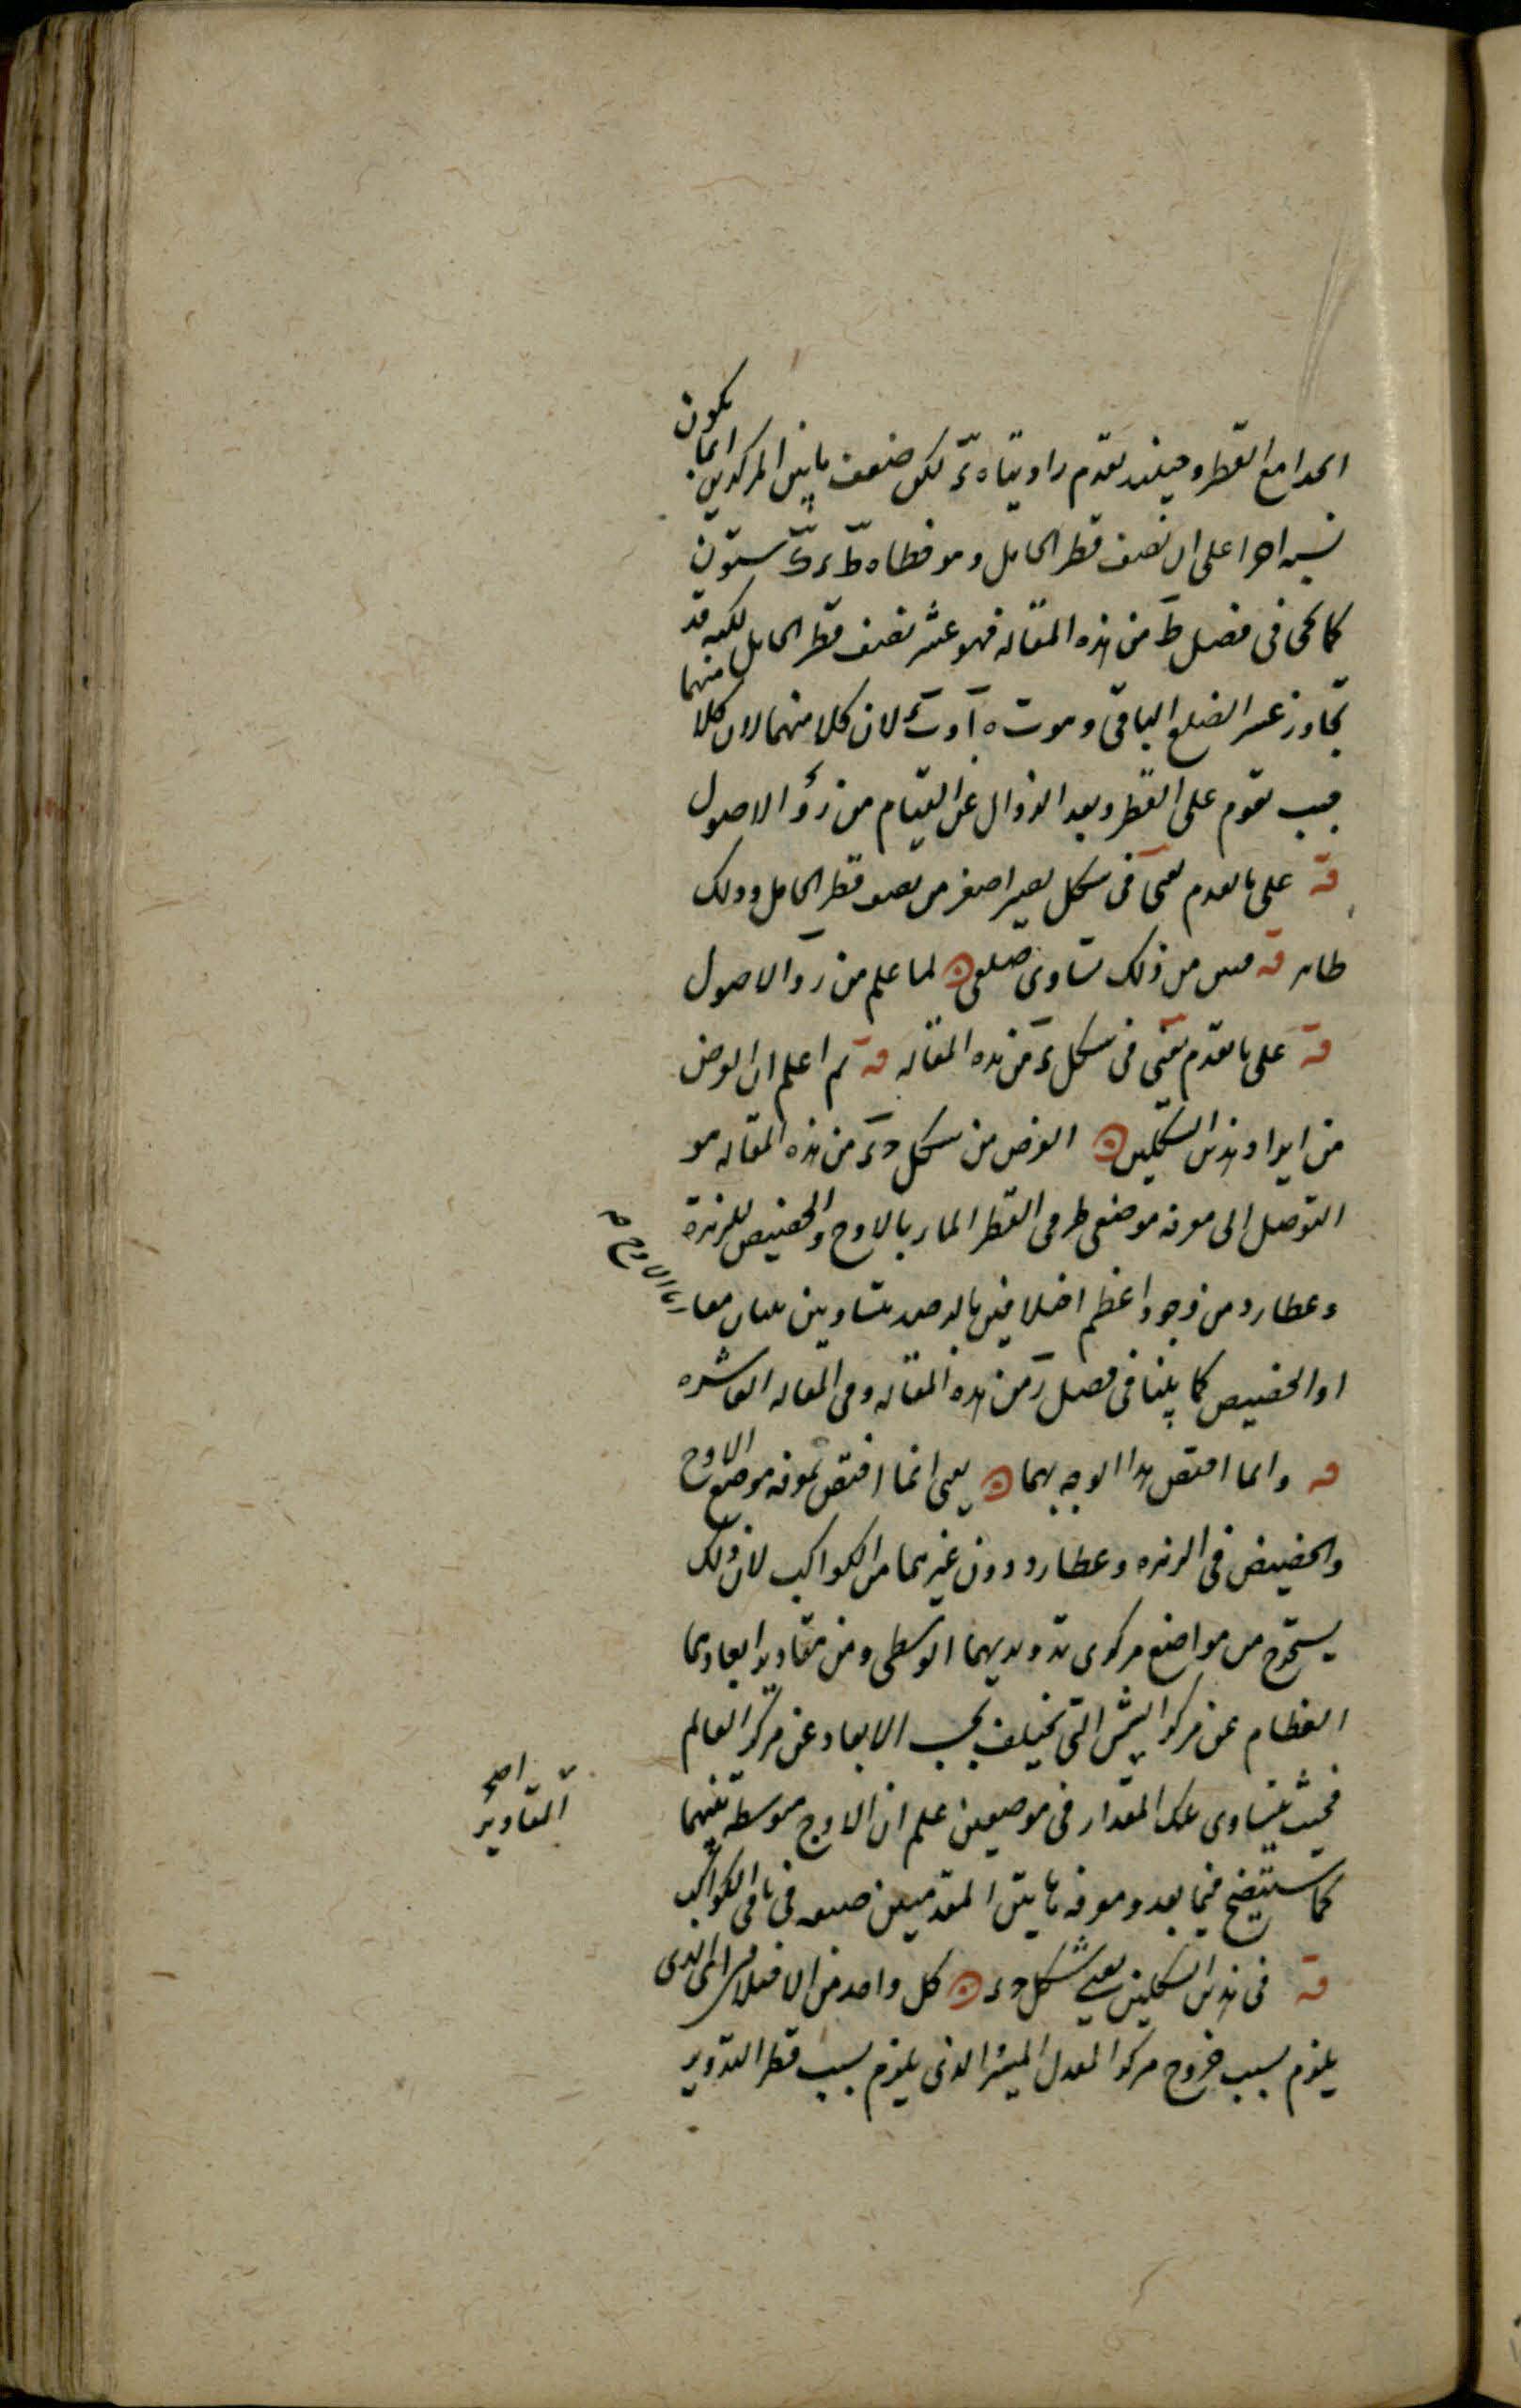 اتحدا مع القطر وحينئذ تقدم زاويتاه ى لكن ضعف ما بين المركزين انما يكون
ستة اجزاء على ان نصف قطر الحامل وهو خطا ه ط ى ك ستون
كما يجئ فى فصل ط من هذه المقالة فهو عشر نصف قطر الحامل لكنه قد
تجاوز عشر الضلع الباقى وهو لان كلا منهما لان كلا منهما
جيب تقوم على القطر وبعد الزوال عن القيام من الاصول
قه على ما تقدم يعنى فى شكل يصير اصغر من نصف قطر الحامل وذلك
ظاهر قه فبين من ذلك تساوى ضلعى لما علم من الاصول
قه على ما تقدم يعنى فى شكل ى من هذه المقاله قه ثم اعلم ان الغرض
من ايراد هذين الشكلين الغرض من شكل ح ى من هذه المقاله هو
التوصل الى معرفة موضعى طرفى القطر المار بالاوج والحضيض للزهرة
وعطارد من وجود اعظم اختلافين بالرصد متساويين
او الحضيض كما بينا فى فصل ز من هذه المقاله وفى المقاله العاشره
قه وانما اختص هذا الوجه بهما يعنى انما اختص بمعرفة موضع الاوج
والحضيض فى الزهره وعطارد دون غيرهما من الكواكب لان ذلك
يستخرج من مواضع مركزى تدويريهما الوسطى ومن مقادير ابعادهما
العظام عن مركز الشمس التى تختلف بحسب الابعاد عن مركز العالم
فحيث يتساوى تلك المقدار فى موضعين علم ان الاوج متوسطة بينهما
المقادير اصح
كما ستتضح فيما بعد ومعرفة هاتين المقدمتين صعبه فى باقى الكواكب
قه فى هذين الشكلين يعنى شكل ح ى كل واحد من الاختلافين اى الذى
يلزم بسبب خروج مركز المعدل المسير الذى يلزم بسبب قطر التدوير